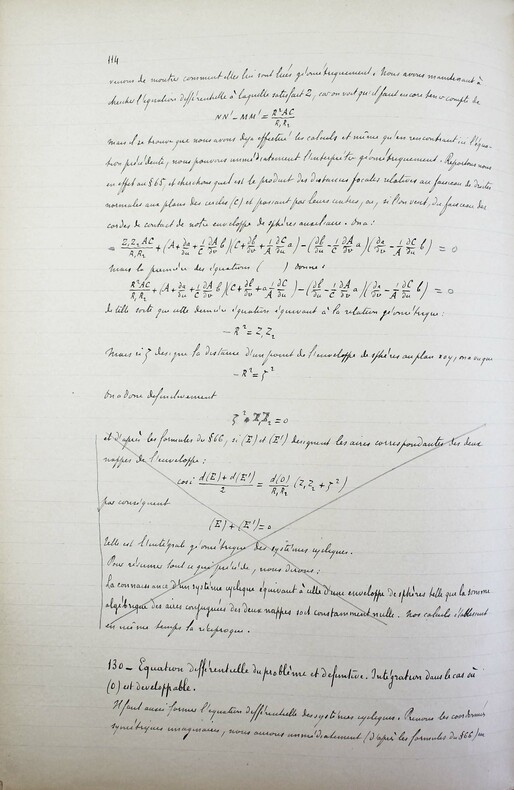 114
venons de montrer comment elles lui sont liées géométriquement. Nous avons maintenant à
chercher l'équation différentielle à laquelle satisfait Z, car on voit qu'il faut encore tenir compte de
NN' - MM' = R²AC / R₁R₂
mais il se trouve que nous avons déjà effectué les calculs et même qu'en rencontrant ici l'équa-
tion précédente, nous pouvons immédiatement l'interpréter géométriquement. Reportons nous
en effet au §65, et cherchons quel est le produit des distances focales relatives au faisceau de droites
normales aux plans des cercles (C) et passant par leurs centres, ou, si l'on veut, du faisceau des
cordes de contact de notre enveloppe de sphères auxiliaire. On a:
= Z₁Z₂AC / R₁R₂ + (A + ∂a/∂u + 1/C ∂A/∂v b)(C + ∂b/∂v + 1/A ∂C/∂u a) - (∂b/∂u - 1/C ∂A/∂v a)(∂a/∂v - 1/A ∂C/∂u b) = 0
mais la première des équations ( ) donne:
R²AC / R₁R₂ + (A + ∂a/∂u + 1/C ∂A/∂v b)(C + ∂b/∂v + a 1/A ∂C/∂u) - (∂b/∂u - 1/C ∂A/∂v a)(∂a/∂v - 1/A ∂C/∂u b) = 0
de telle sorte que cette dernière équation équivaut à la relation géométrique:
- R² = Z₁Z₂
Mais si ζ désigne la distance d'un point de l'enveloppe de sphères au plan xoy, on a vu que
- R² = ζ²
On a donc définitivement
ζ² + Z₁Z₂ = 0
et d'après les formules du §66, si (E) et (E') désignent les aires correspondantes des deux
nappes de l'enveloppe:
cos i d(E) + d(E') / 2 = d(O) / R₁R₂ (Z₁Z₂ + ζ²)
par conséquent
(E) + (E') = 0
telle est l'intégrale géométrique des systèmes cycliques.
Pour résumer tout ce qui précède, nous dirons:
La connaissance d'un système cyclique équivaut à celle d'une enveloppe de sphères telle que la somme
algébrique des aires conjuguées des deux nappes soit constamment nulle. Nos calculs établissent
en même temps la réciproque.
130 - Equation différentielle du problème et définitive. Intégration dans le cas où
(O) est développable.
Il faut aussi former l'équation différentielle des systèmes cycliques. Prenons les coordonnées
symétriques imaginaires, nous aurons immédiatement (d'après les formules du §66) en